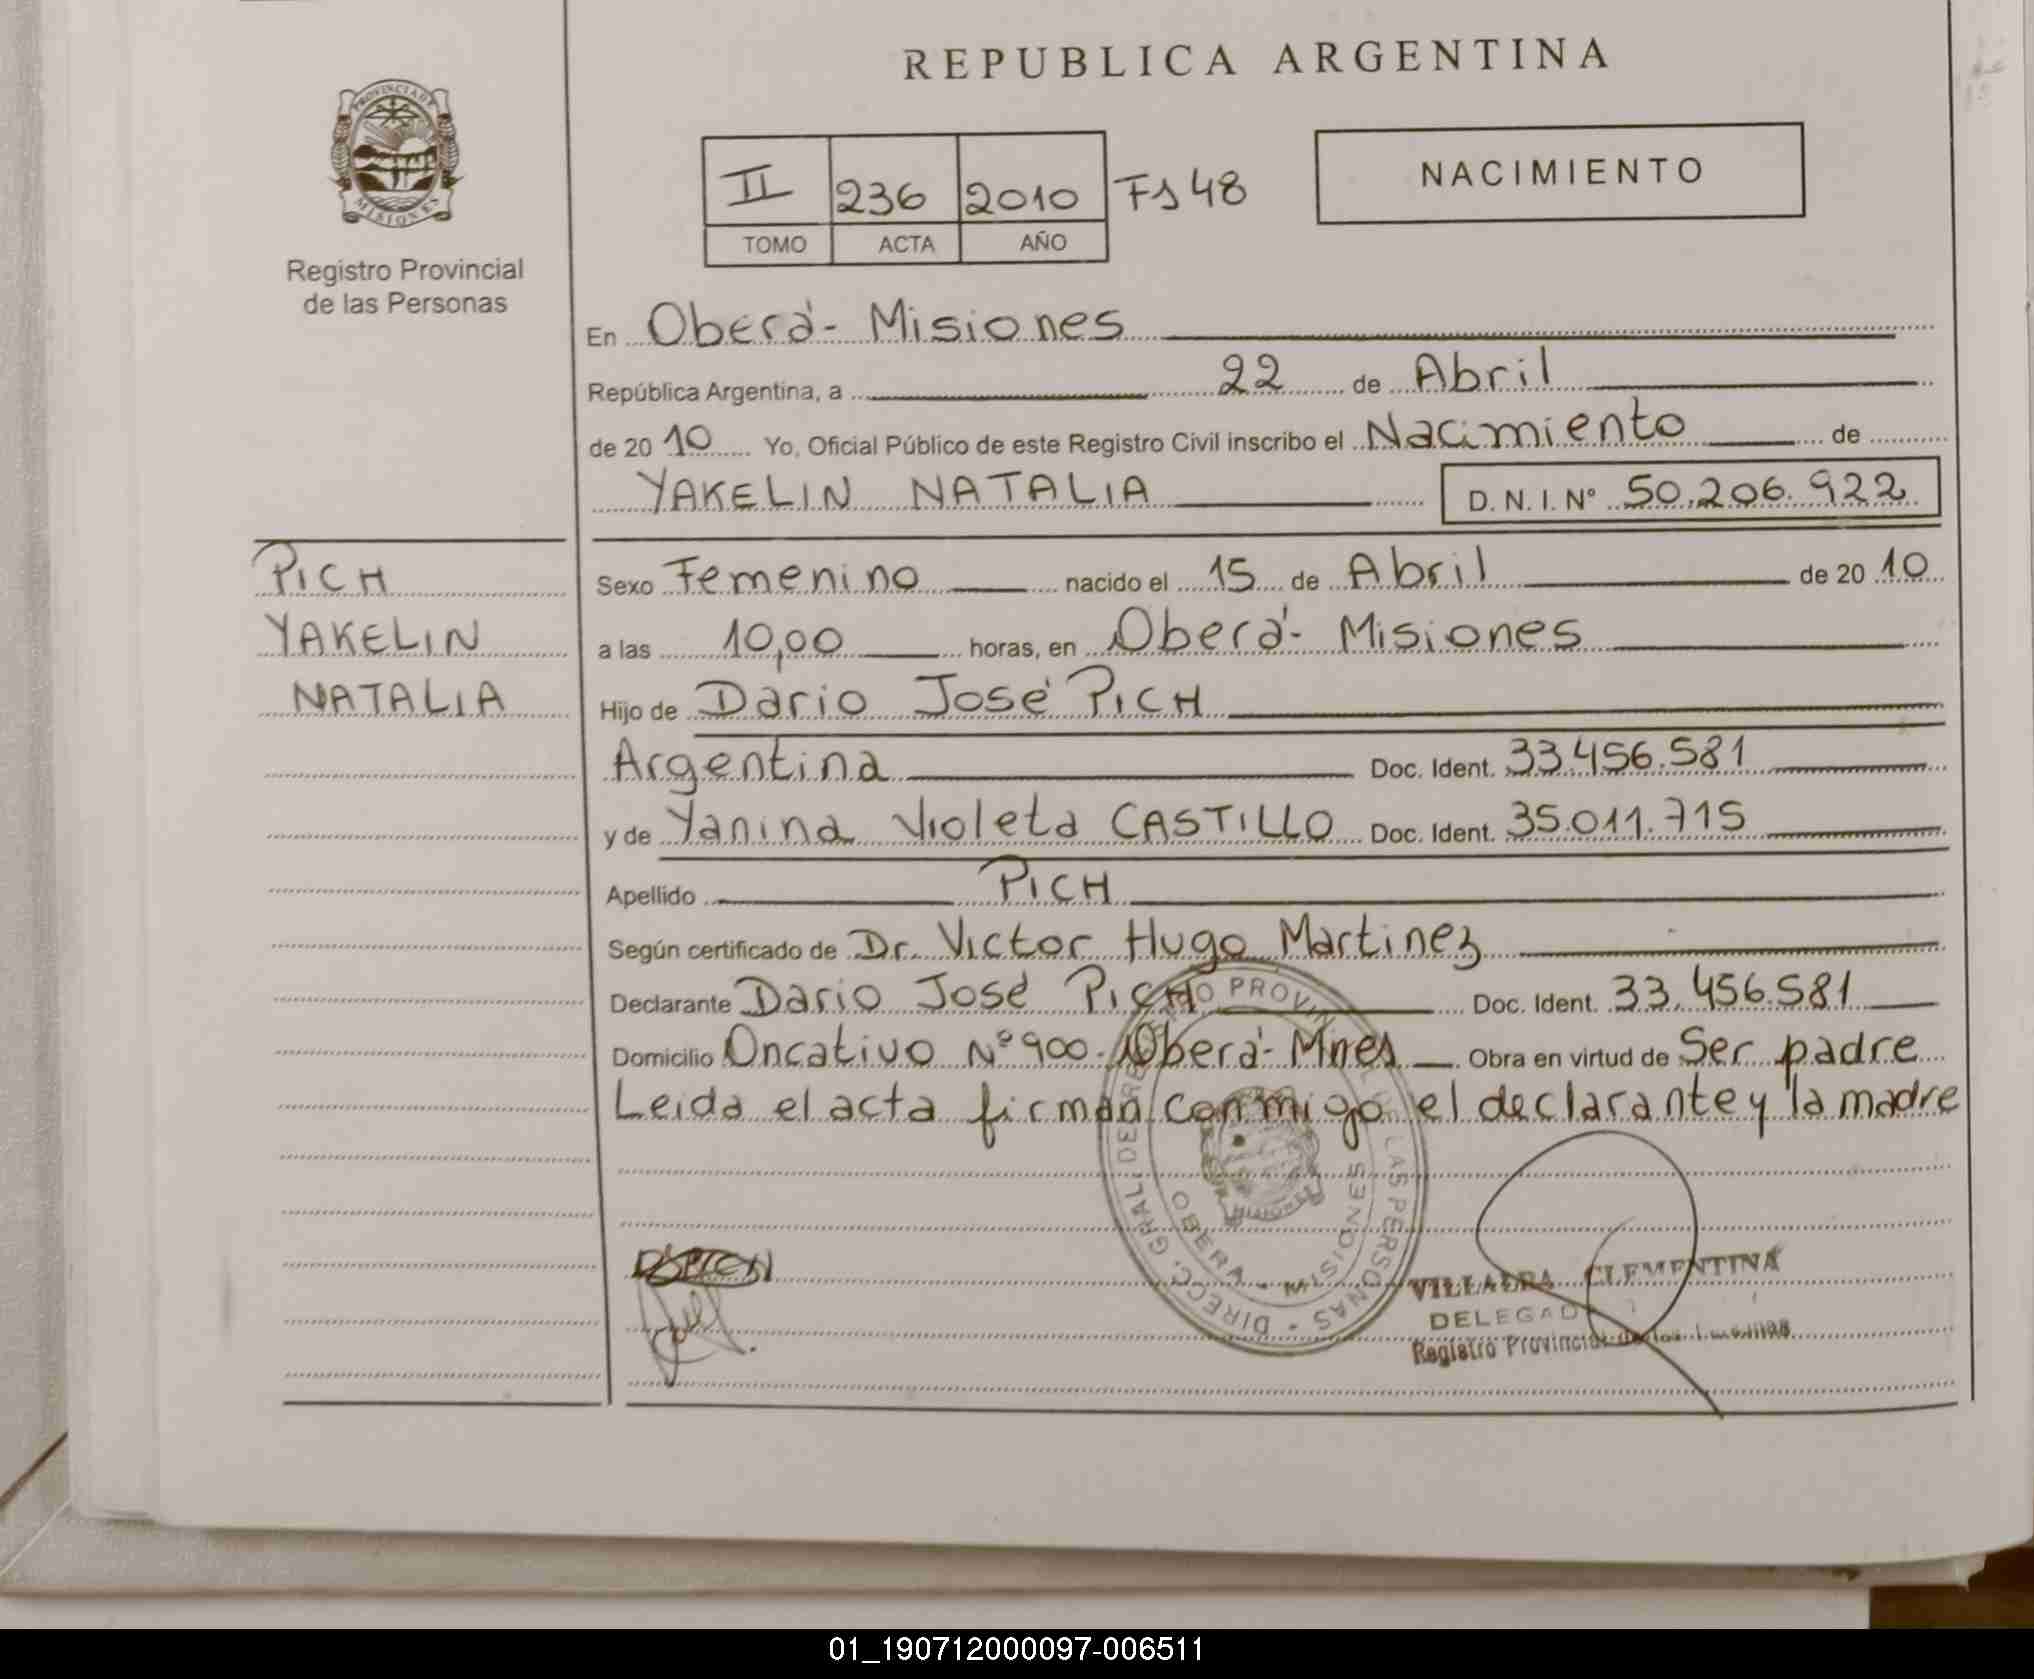 REPUBLICA ARGENTINA
PROVINCIA DE
MISIONES
Registro Provincial
de las Personas
II 236 2010 Fs 48
TOMO ACTA AÑO
NACIMIENTO
En Oberá - Misiones
República Argentina, a 22 de Abril
de 20 10 Yo, Oficial Público de este Registro Civil inscribo el Nacimiento de
YAKELIN NATALIA D.N.I. Nº 50.206.922
PICH
YAKELIN
NATALIA
Sexo Femenino nacido el 15 de Abril de 20 10
a las 10,00 horas, en Oberá - Misiones
Hijo de Dario José PICH
Argentina Doc. Ident. 33.456.581
y de Yanina Violeta CASTILLO Doc. Ident. 35.011.715
Apellido PICH
Según certificado de Dr. Victor Hugo Martinez
Declarante Dario José PICH Doc. Ident. 33.456.581
Domicilio Oncativo Nº 900. Oberá - Mnes Obra en virtud de Ser padre
Leida el acta firman conmigo el declarante y la madre
DIRECC. GRAL. DE REGISTRO PROVINCIAL DE LAS PERSONAS
OBERA - MISIONES
VILLALBA CLEMENTINA
DELEGADA
Registro Provincial de las
01_190712000097-006511